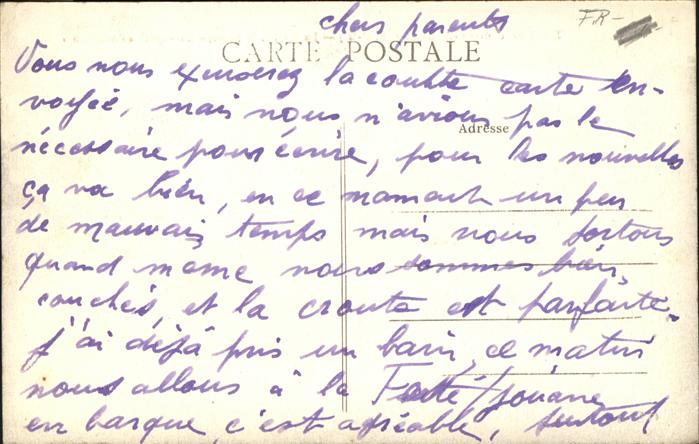 chers parents
FR-
CARTE POSTALE
Vous nous excuserez la courte carte en-
voyée, mais nous n'avions pas le
Adresse
nécessaire pour écrire, pour les nouvelles
ça va bien, en ce moment un peu
de mauvais temps mais nous sortons
quand meme nous sommes bien
couchés, et la croute est parfaite.
j'ai déjà pris un bain, ce matin
nous allons à la
en barque, c'est agréable, surtout